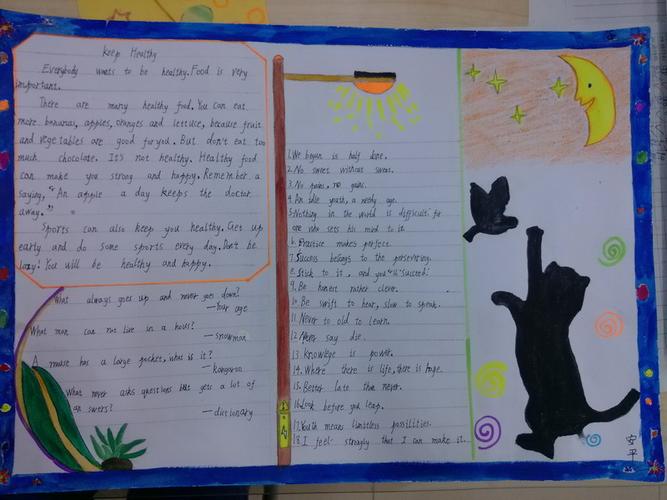 Keep Healthy
Everybody wants to be healthy. Food is very
important.
There are many healthy food. You can eat
more bananas, apples, oranges and lettuce, because fruit
and vegetables are good for you. But don't eat too
much chocolate. It's not healthy. Healthy food
can make you strong and happy. Remember a
saying, "An apple a day keeps the doctor
away."
Sports can also keep you healthy. Get up
early and do some sports every day. Don't be
lazy! You will be healthy and happy.
What always goes up and never goes down?
—Your age
What man can not live in a house?
—snowman
A mouse has a large pocket, what is it?
—kangaroo
What never asks questions but gets a lot of
answers?
—dictionary
1. We began is half done.
2. No sweet without sweat.
3. No pains, no gains.
4. An idle youth, a needy age.
5. Nothing in the world is difficult for
one who sets his mind to it.
6. Practice makes perfect.
7. Success belongs to the persevering.
8. Stick to it, and you'll succeed.
9. Be honest rather clever.
10. Be swift to hear, slow to speak.
11. Never to old to learn.
12. Never say die.
13. Knowlege is power.
14. Where there is life, there is hope.
15. Better late than never.
16. Look before you leap.
17. Youth means limitless possilities.
18. I feel strongly that I can make it.
安平